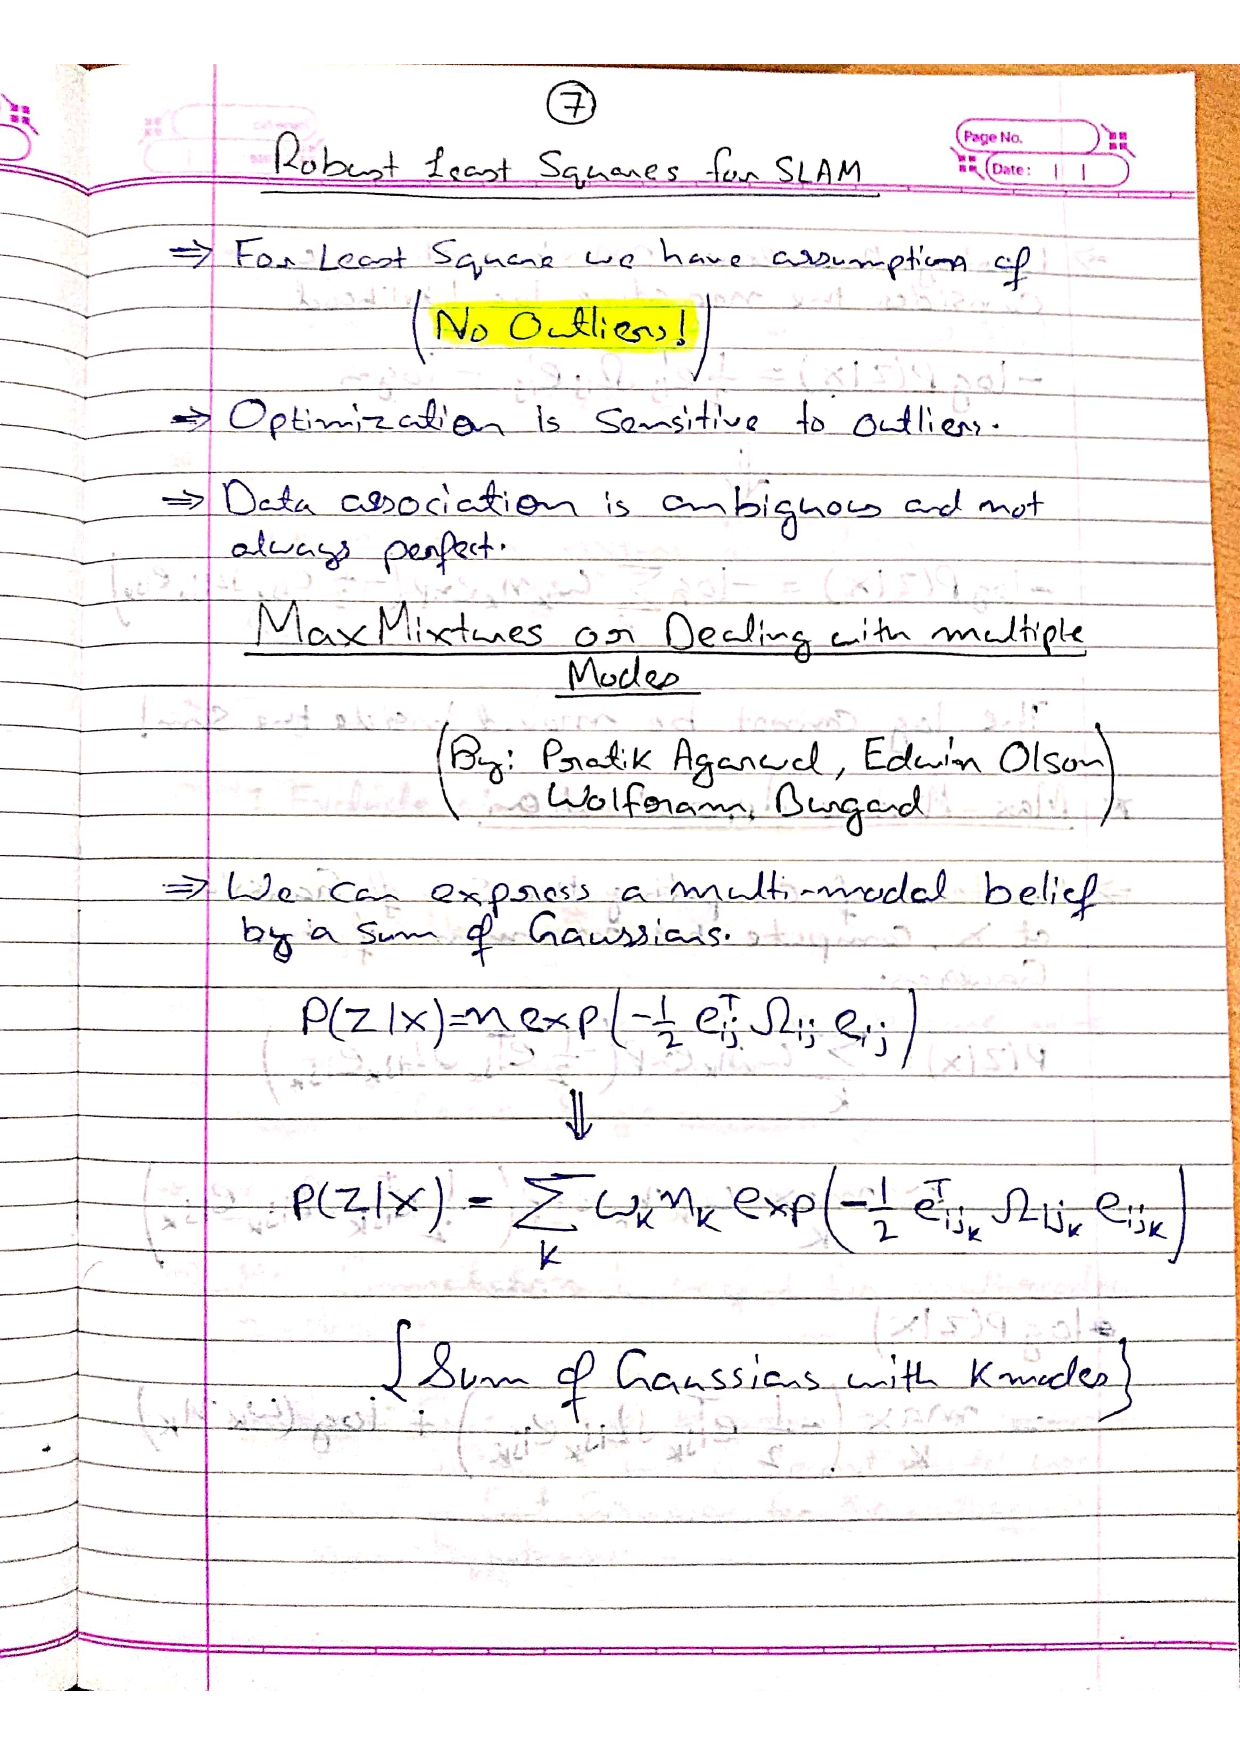 ⑦
Page No.
Date: | |
Robust Least Squares for SLAM
⇒ For Least Square we have assumptions of
(No Outliers!)
⇒ Optimization is sensitive to outliers.
⇒ Data association is ambiguous and not
always perfect.
MaxMixtures or Dealing with multiple
Modes
(By: Pratik Agarwal, Edwin Olson
Wolfram, Burgard)
⇒ We can express a multi-modal belief
by a sum of Gaussians.
P(Z|X)=η exp(-1/2 e_ij^T Ω_ij e_ij)
⇓
P(Z|X) = Σ_K ω_K η_K exp(-1/2 e_ijK^T Ω_ijK e_ijK)
{Sum of Gaussians with K modes}